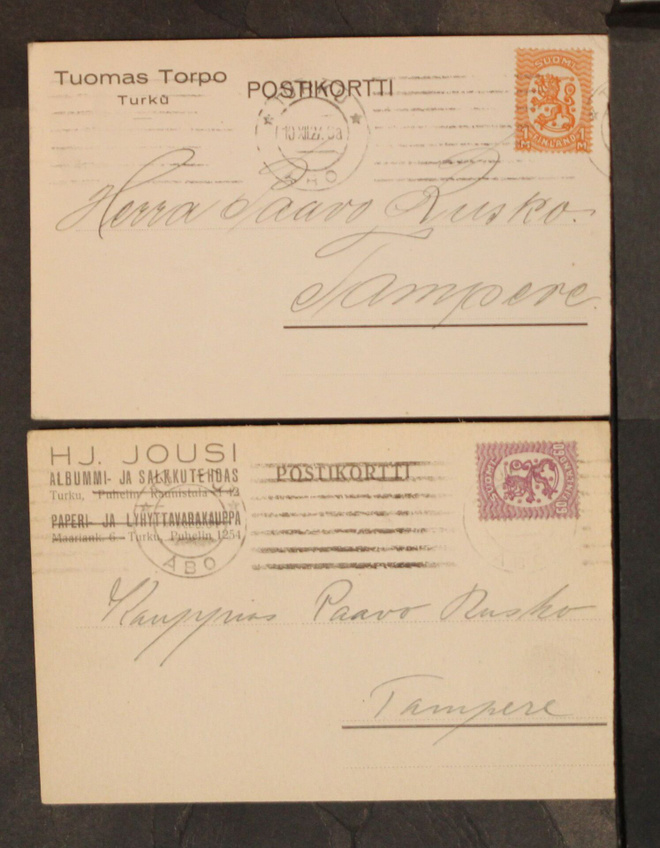 Tuomas Torpo
Turku
POSTIKORTTI
SUOMI
FINLAND
1 M 1 M
TURKU
10.XII.27.
ÅBO
Herra Paavo Rusko.
Tampere.
HJ. JOUSI
ALBUMMI- JA SALKKUTEHDAS
Turku, Puhelin
PAPERI- JA LYHYTTAVARAKAUPPA
Maariank. 6 Turku, Puhelin 1254
POSTIKORTTI
SUOMI
FINLAND
ÅBO
Kauppias Paavo Rusko
Tampere